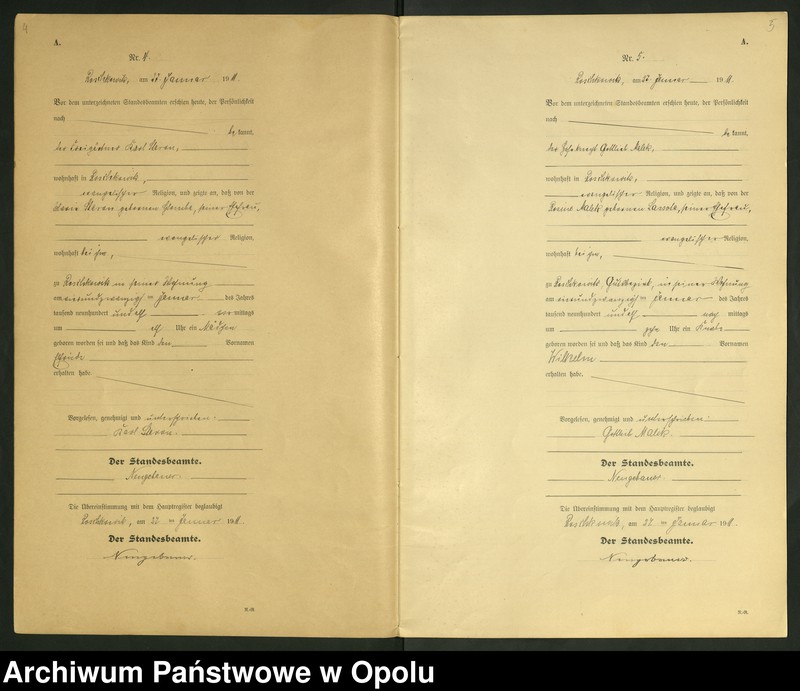 4
A.
Nr. 4.
am 27 Januar 1911.
Vor dem unterzeichneten Standesbeamten erschien heute, der Persönlichkeit
nach
be kannt,
der Karl
wohnhaft in
evangelischer Religion, und zeigte an, daß von der
geborenen seiner Ehefrau,
evangelischer Religion,
wohnhaft bei ihm,
zu in seiner Wohnung
am Januar des Jahres
tausend neunhundert und elf vor mittags
um elf Uhr ein Mädchen
geboren worden sei und daß das Kind den Vornamen
erhalten habe.
Vorgelesen, genehmigt und unterschrieben:
Karl
Der Standesbeamte.
Neugebauer
Die Übereinstimmung mit dem Hauptregister beglaubigt
am 27. ten Januar 1911.
Der Standesbeamte.
Neugebauer.
K.-R.
5
A.
Nr. 5.
am 27 Januar 1911.
Vor dem unterzeichneten Standesbeamten erschien heute, der Persönlichkeit
nach
be kannt,
der Gottlieb Malek,
wohnhaft in
evangelischer Religion, und zeigte an, daß von der
Malek geborenen seiner Ehefrau,
evangelischer Religion,
wohnhaft bei ihm,
zu Gutsbezirk, in seiner Wohnung
am Januar des Jahres
tausend neunhundert und elf nach mittags
um Uhr ein Knabe
geboren worden sei und daß das Kind den Vornamen
Wilhelm
erhalten habe.
Vorgelesen, genehmigt und unterschrieben:
Gottlieb Malek.
Der Standesbeamte.
Neugebauer
Die Übereinstimmung mit dem Hauptregister beglaubigt
am 27. ten Januar 1911.
Der Standesbeamte.
Neugebauer.
K.-R.
Archiwum Państwowe w Opolu